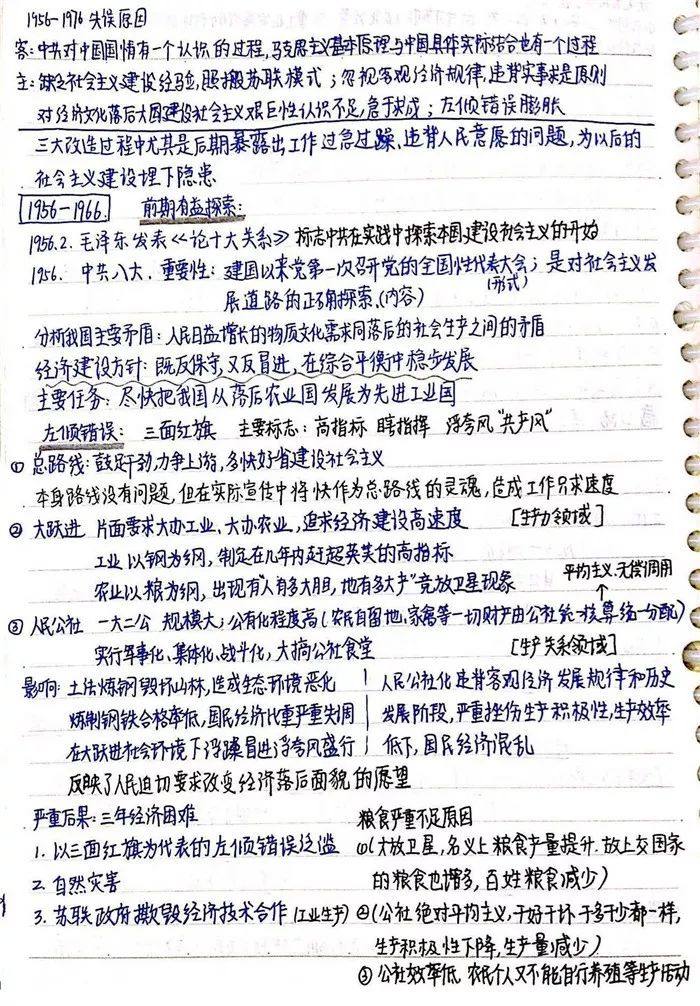 1956-1976 失误原因
答:中共对中国国情有一个认识的过程,马克思主义基本原理与中国具体实际结合也有一个过程
主:缺乏社会主义建设经验,照搬苏联模式;忽视客观经济规律,违背实事求是原则
对经济文化落后大国建设社会主义艰巨性认识不足,急于求成;左倾错误膨胀
三大改造过程中尤其是后期暴露出工作过急过躁、违背人民意愿的问题,为以后的
社会主义建设埋下隐患
1956-1966 前期有益探索:
1956.2. 毛泽东发表《论十大关系》标志中共在实践中探索本国建设社会主义的开始
1956. 中共八大. 重要性:建国以来党第一次召开党的全国性代表大会;是对社会主义发
(形式)
展道路的正确探索.(内容)
分析我国主要矛盾:人民日益增长的物质文化需求同落后的社会生产之间的矛盾
经济建设方针:既反保守,又反冒进,在综合平衡中稳步发展
主要任务:尽快把我国从落后农业国发展为先进工业国
左倾错误: 三面红旗 主要标志:高指标 瞎指挥 浮夸风 "共产风"
① 总路线:鼓足干劲,力争上游,多快好省建设社会主义
本身路线没有问题,但在实际宣传中将快作为总路线的灵魂,造成工作只求速度
② 大跃进 片面要求大办工业、大办农业,追求经济建设高速度 [生产力领域]
工业以钢为纲,制定在几年内赶超英美的高指标
农业以粮为纲,出现有"人有多大胆,地有多大产"竞放卫星现象
平均主义.无偿调用
③ 人民公社 一大二公 规模大;公有化程度高(农民自留地、家禽等一切财产由公社统一核算统一分配)
实行军事化、集体化、战斗化,大搞公社食堂 [生产关系领域]
影响:土法炼钢毁坏山林,造成生态环境恶化
炼制钢铁合格率低,国民经济比重严重失调
在大跃进社会环境下浮躁冒进浮夸风盛行
人民公社化违背客观经济发展规律和历史
发展阶段,严重挫伤生产积极性,生产效率
低下,国民经济混乱
反映了人民迫切要求改变经济落后面貌的愿望
严重后果:三年经济困难
1. 以三面红旗为代表的左倾错误泛滥
2. 自然灾害
3. 苏联政府撕毁经济技术合作(工业生产)
粮食严重不足原因
①(大放卫星,名义上粮食产量提升.故上交国家
的粮食也增多,百姓粮食减少)
②(公社绝对平均主义,干好干坏干多干少都一样,
生产积极性下降,生产量减少)
③ 公社效率低 农民个人又不能自行养殖等生产活动